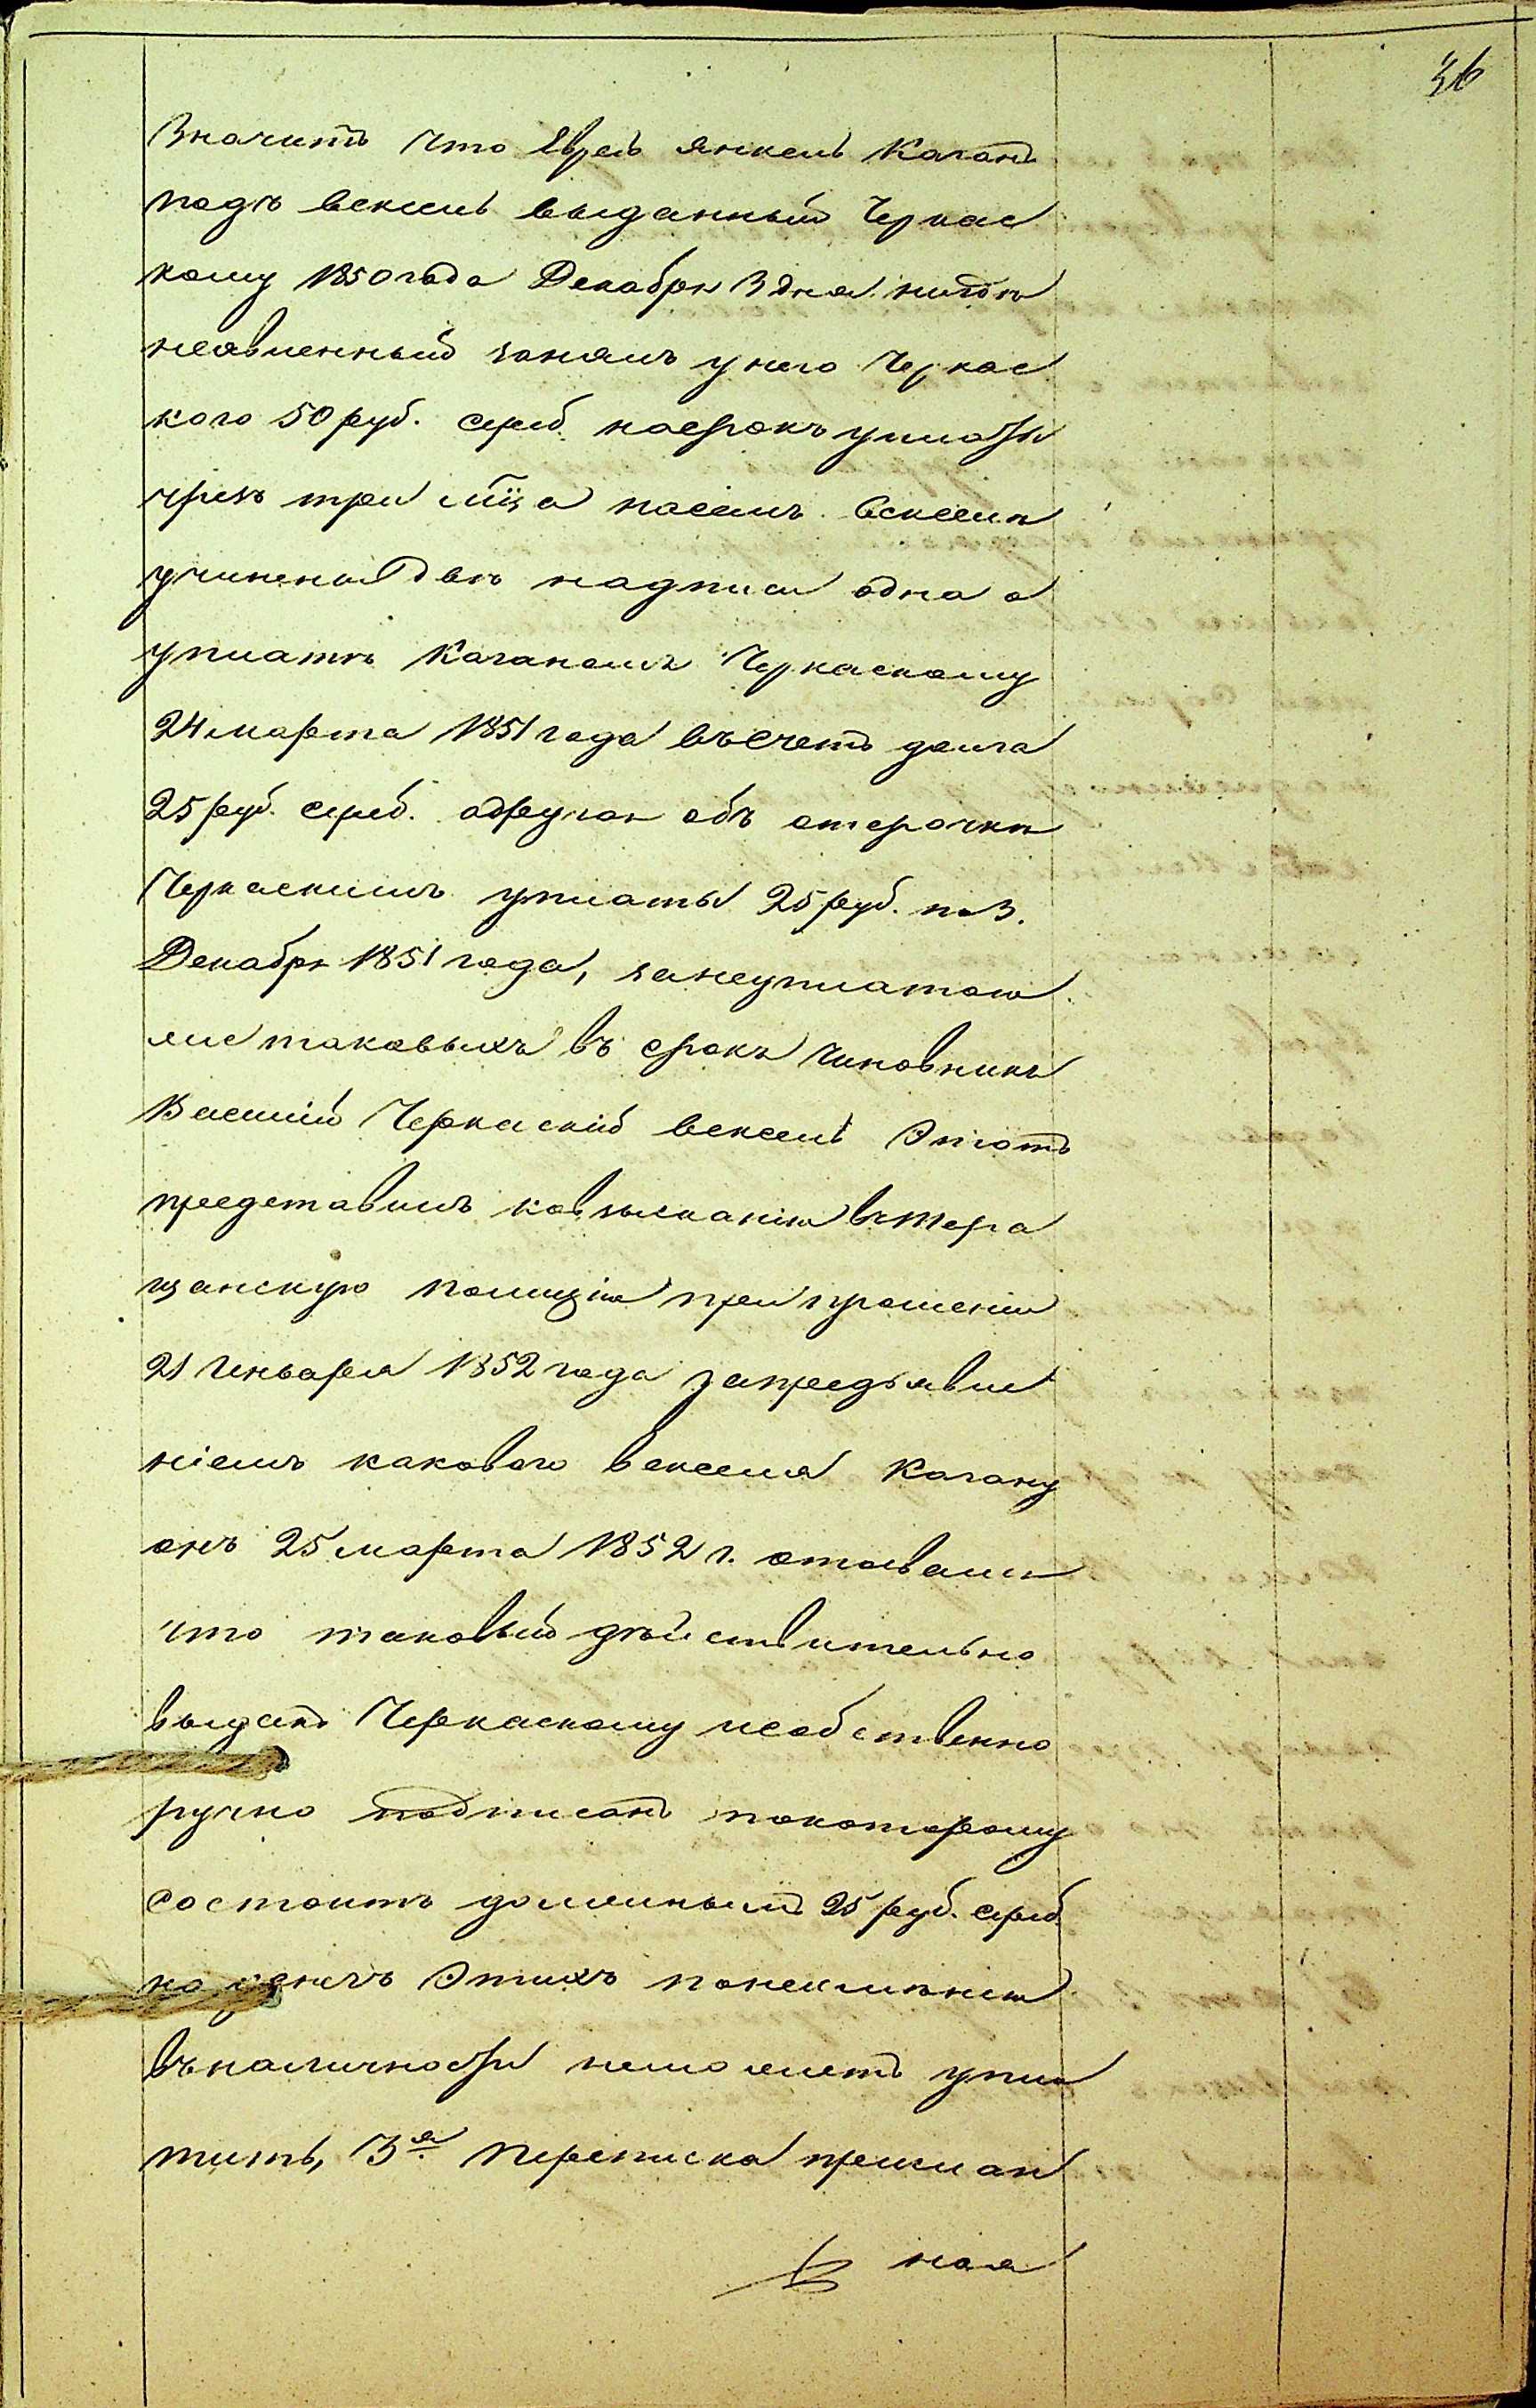 36
Значитъ что Еврей Янкель Каганъ
подъ вексель выданный Черкас
кому 1850 года Декабря 3 дня нигдѣ
неявленный занялъ у него Черкас
кого 50 руб. сереб. насрокъ уплаты
чрезъ три мца насемъ векселѣ
учинены двѣ надписи одна о
уплатѣ Каганомъ Черкаскому
24 марта 1851 года въ счетъ долга
25 руб. сереб. адругая объ отсрочкѣ
Черкаскимъ уплаты 25 руб. по 3.
Декабря 1851 года, занеуплатою
же таковыхъ въ срокъ чиновникъ
Василій Черкаскій вексель Этотъ
представилъ ковзысканію вътера
щанскую полицію при прошеніи
21 Генваря 1852 года запредъявле
ніемъ каковаго векселя Кагану
онъ 25 марта 1852 г. отозвался
что таковый дѣйствительно
выданъ Черкаскому исобственно
ручно подписанъ покоторому
состоитъ должнымъ 25 руб. сереб.
но денегъ Этихъ понеимѣнію
въналичности неможетъ упла
тить, 3я. Переписка прислан
ная